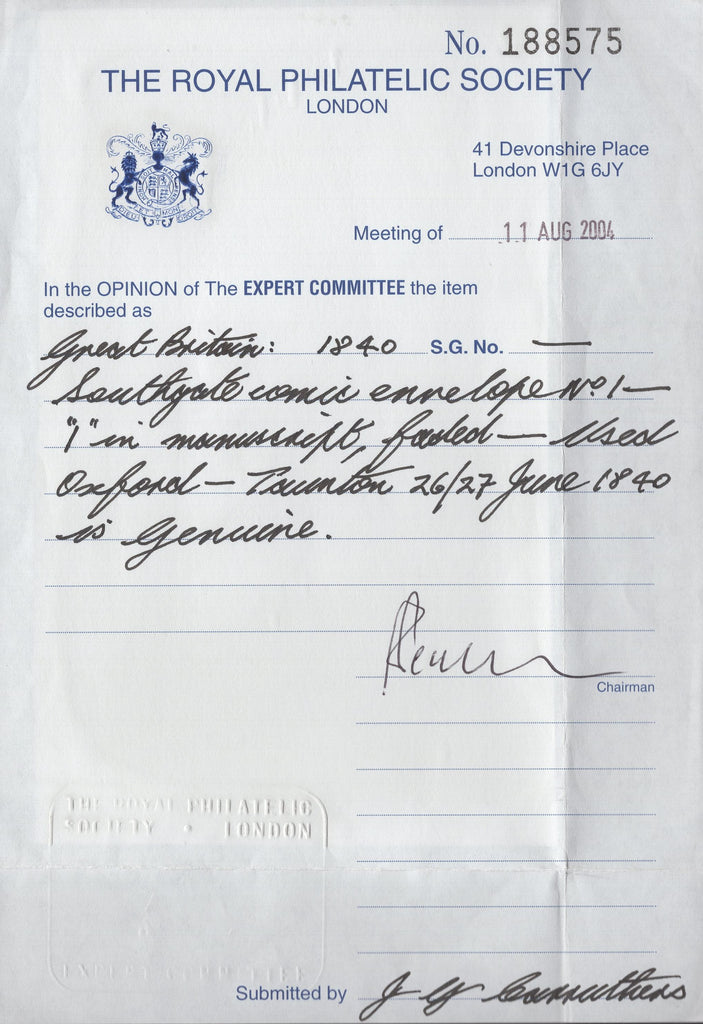 No. 188575
THE ROYAL PHILATELIC SOCIETY
LONDON
41 Devonshire Place
London W1G 6JY
Meeting of 11 AUG 2004
In the OPINION of The EXPERT COMMITTEE the item
described as
Great Britain: 1840 S.G. No. —
Southgate comic envelope No 1 —
"1" in manuscript, faded — Used
Oxford — Taunton 26/27 June 1840
is Genuine.
Chairman
THE ROYAL PHILATELIC
SOCIETY • LONDON
EXPERT COMMITTEE
Submitted by J Carruthers